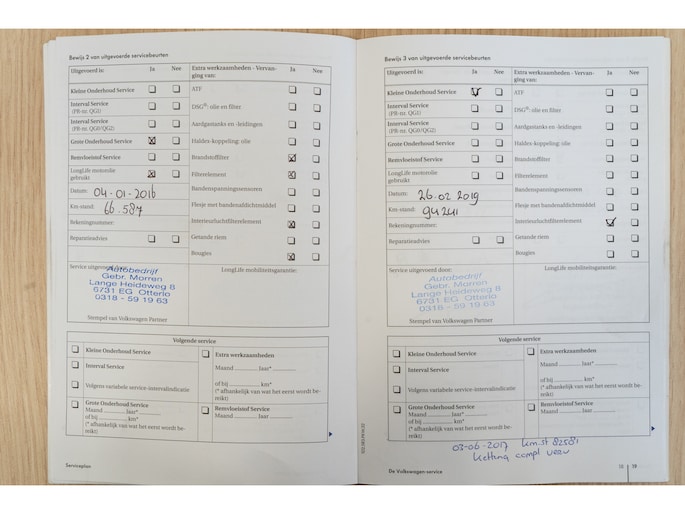 Bewijs 2 van uitgevoerde servicebeurten
Uitgevoerd is: Ja Nee
Extra werkzaamheden - Vervan-
ging van: Ja Nee
Kleine Onderhoud Service
Interval Service
(PR-nr. QG1)
Interval Service
(PR-nr. QG0/QG2)
Grote Onderhoud Service
Remvloeistof Service
LongLife motorolie
gebruikt
Datum: 04-01-2016
Km-stand: 66.587
Bekeningnummer:
Reparatieadvies
ATF
DSG®: olie en filter
Aardgastanks en -leidingen
Haldex-koppeling: olie
Brandstoffilter
Filterelement
Bandenspanningsensoren
Flesje met bandenafdichtmiddel
Interieurluchtfilterelement
Getande riem
Bougies
Service uitgevoerd door:
LongLife mobiliteitsgarantie:
Autobedrijf
Gebr. Morren
Lange Heideweg 8
6731 EG Otterlo
0318 - 59 19 63
Stempel van Volkswagen Partner
Volgende service
Kleine Onderhoud Service
Interval Service
Volgens variabele service-intervalindicatie
Grote Onderhoud Service
Maand ........ Jaar*........
of bij ........ km*
(* afhankelijk van wat het eerst wordt be-
reikt)
Extra werkzaamheden
Maand ........ Jaar*........
of bij ........ km*
(* afhankelijk van wat het eerst wordt be-
reikt)
Remvloeistof Service
Maand ........ Jaar........
Serviceplan
Bewijs 3 van uitgevoerde servicebeurten
Uitgevoerd is: Ja Nee
Extra werkzaamheden - Vervan-
ging van: Ja Nee
Kleine Onderhoud Service
Interval Service
(PR-nr. QG1)
Interval Service
(PR-nr. QG0/QG2)
Grote Onderhoud Service
Remvloeistof Service
LongLife motorolie
gebruikt
Datum: 26-02 2019
Km-stand: 94241
Bekeningnummer:
Reparatieadvies
ATF
DSG®: olie en filter
Aardgastanks en -leidingen
Haldex-koppeling: olie
Brandstoffilter
Filterelement
Bandenspanningsensoren
Flesje met bandenafdichtmiddel
Interieurluchtfilterelement
Getande riem
Bougies
Service uitgevoerd door:
LongLife mobiliteitsgarantie:
Autobedrijf
Gebr. Morren
Lange Heideweg 8
6731 EG Otterlo
0318 - 59 19 63
Stempel van Volkswagen Partner
Volgende service
Kleine Onderhoud Service
Interval Service
Volgens variabele service-intervalindicatie
Grote Onderhoud Service
Maand ........ Jaar*........
of bij ........ km*
(* afhankelijk van wat het eerst wordt be-
reikt)
Extra werkzaamheden
Maand ........ Jaar*........
of bij ........ km*
(* afhankelijk van wat het eerst wordt be-
reikt)
Remvloeistof Service
Maand ........ Jaar........
03-06-2017 km.st 82581
ketting compl verv
De Volkswagen-service